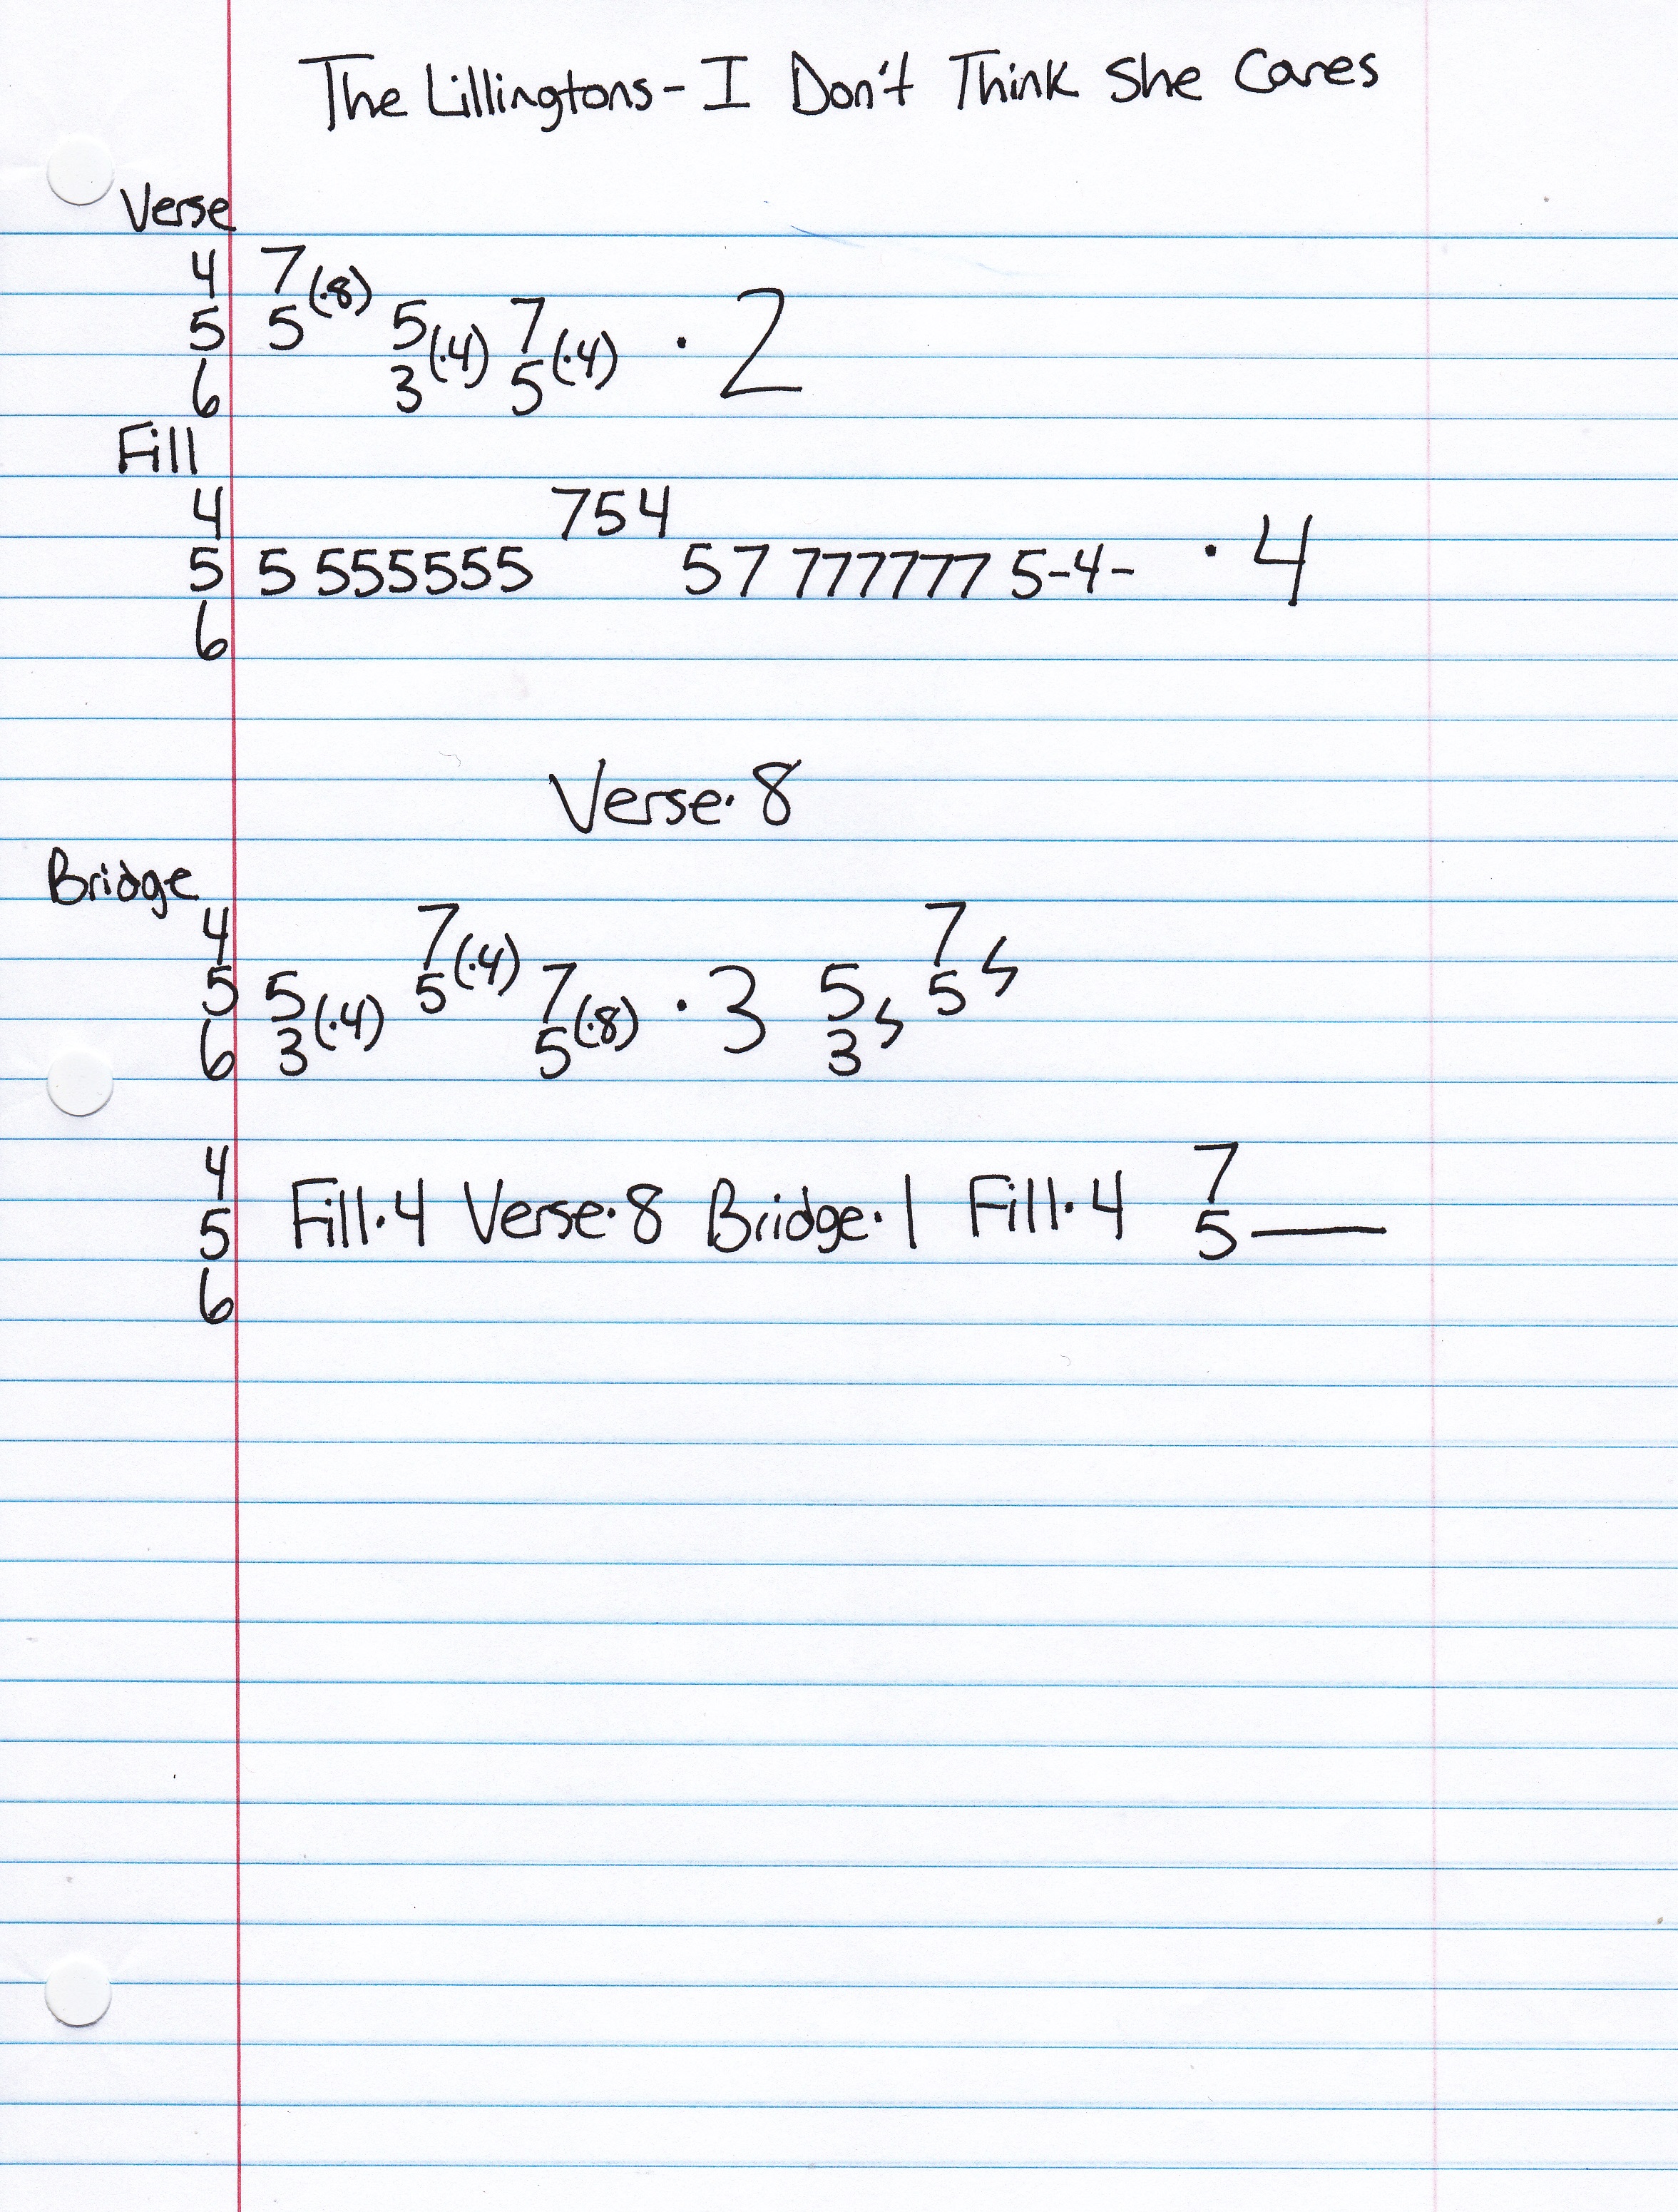 The Lillingtons - I Don't Think She Cares
Verse
4 7 (·8)
5 5 5 (·4) 7 (·4) · 2
6 3 5
Fill
4 754
5 5 555555 57 777777 5-4- · 4
6
Verse · 8
Bridge
4 7 (·4) 7
5 5 5 7 · 3 5 5
6 3 (·4) 5 (·8) 3
4 7
5 Fill · 4 Verse · 8 Bridge · 1 Fill · 4 5 —
6